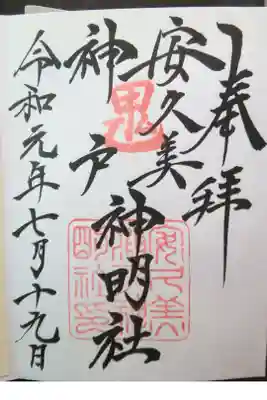 奉拝
安久美
神戸神明社
令和元年七月十九日
鬼
安久美神戸神明社印